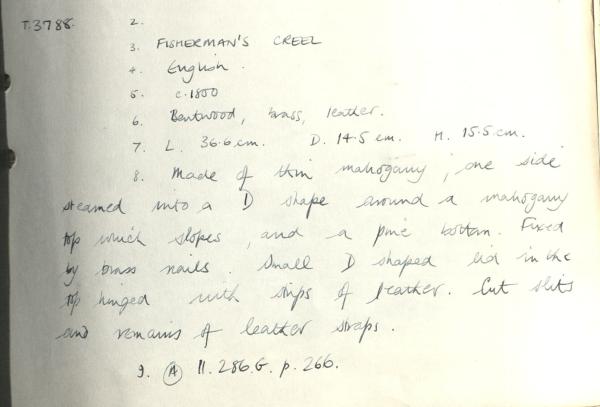 T.3788. 2.
3. FISHERMAN'S CREEL
4. English.
5. c.1800
6. Bentwood, brass, leather.
7. L. 36.6.cm. D. 14.5 cm. H. 15.5.cm.
8. Made of thin mahogany, one side
steamed into a D shape around a mahogany
top which slopes, and a pine bottom. Fixed
by brass nails. Small D shaped lid in the
top hinged with strips of leather. Cut slits
and remains of leather straps.
9. A 11.286.G. p.266.